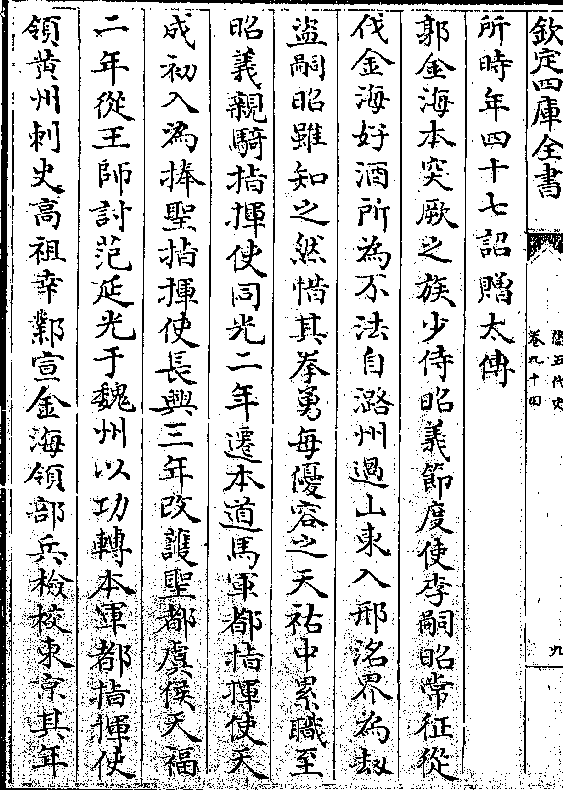 欽定四庫全書
舊五代史
卷九十四
九
所時年四十七詔贈太傅
郭金海本突厥之族少侍昭義節度使李嗣昭常征從
伐金海好酒所為不法自潞州過山東入邢洺界為劫
盜嗣昭雖知之然惜其拳勇每優容之天祐中累職至
昭義親騎指揮使同光二年遷本道馬軍都指揮使天
成初入為捧聖指揮使長興三年改護聖都虞候天福
二年從王師討范延光于魏州以功轉本軍都指揮使
領黄州刺史高祖幸鄴宣金海領部兵檢校東京其年